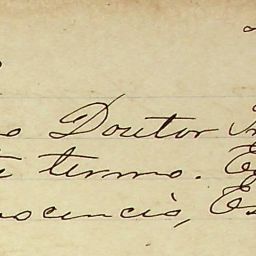 o Doutor
te termo. E
nocencio, Es